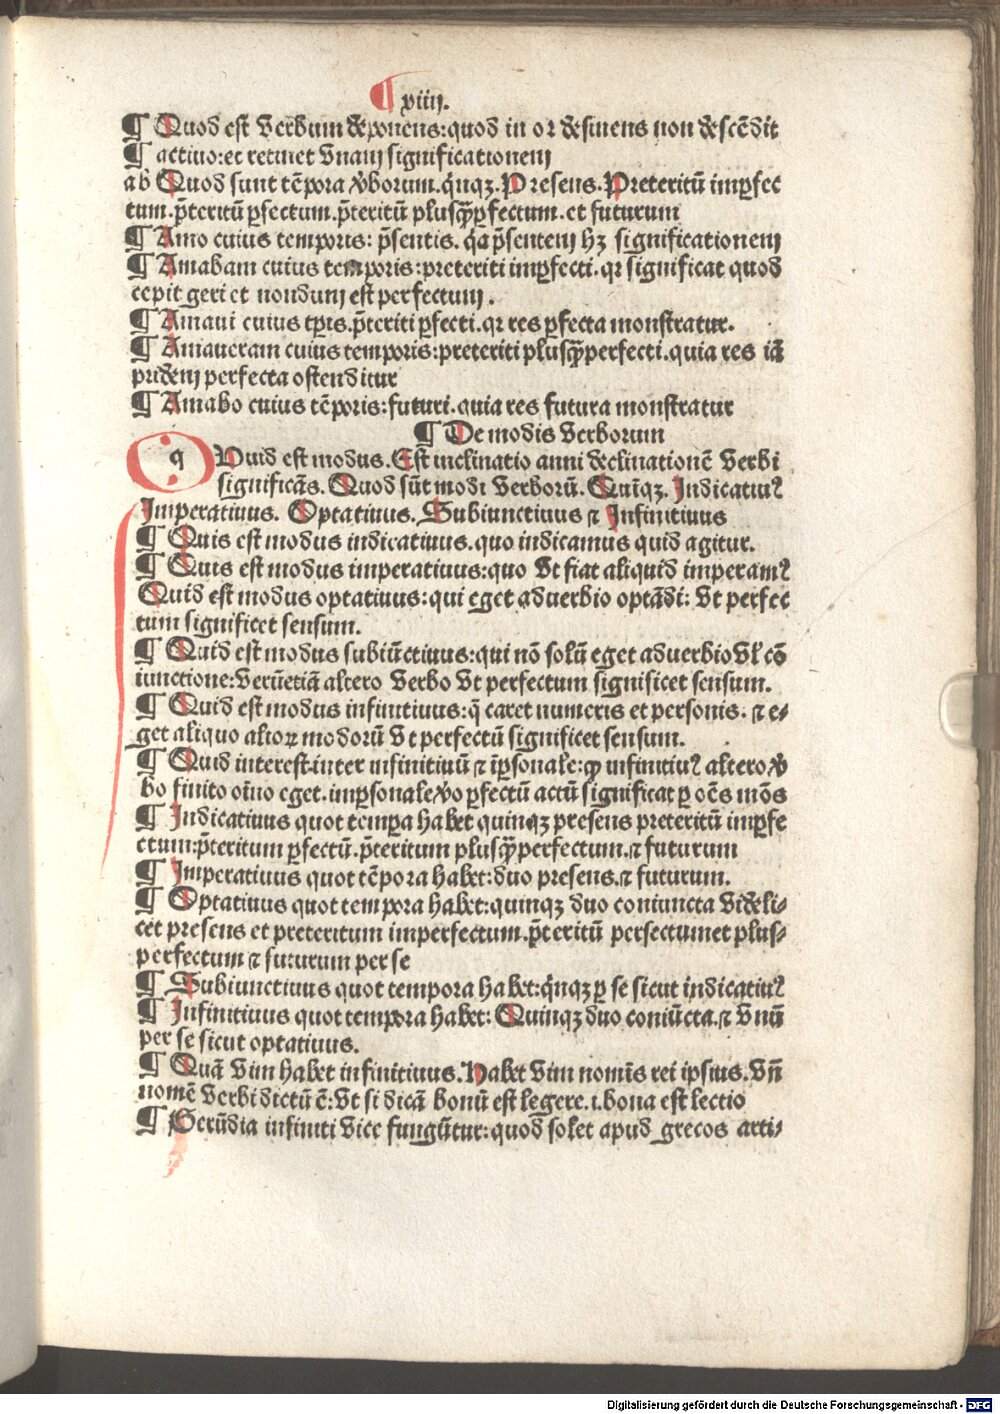 ¶ xiiij.
¶ Quod est Verbum deponens: quod in or desinens non descēdit
¶ actiuo: et retinet Vnam significationem
ab Quod sunt tēpora v̓borum. qnqꝫ. Presens. Preteritū imꝑfec
tum. p̄teritū ꝑfectum. p̄teritū plusꝙ̄ꝑfectum. et futurum
¶ Amo cuius temporis: p̄sentis. qa p̄sentem hꝫ significationem
¶ Amabam cuius temporis: preteriti imꝑfecti. qꝛ significat quod
cepit geri et nondum est perfectum.
¶ Amaui cuius tꝑis. p̄teriti ꝑfecti. qꝛ res ꝑfecta monstratur.
¶ Amaueram cuius temporis: preteriti plusꝙ̄perfecti. quia res iā
pridem perfecta ostenditur
¶ Amabo cuius tēporis: futuri. quia res futura monstratur
¶ De modis Verborum
q QVuid est modus. Est inclinatio anni declinationē Verbi
significās. Quod sūt modi Verborū. Quīqꝫ. Indicatiuꝰ
Imperatiuus. Optatiuus. Subiunctiuus ⁊ Infinitiuus
¶ Quis est modus indicatiuus. quo indicamus quid agitur.
¶ Quis est modus imperatiuus: quo Vt fiat aliquid imperamꝰ
Quid est modus optatiuus: qui eget aduerbio optādi: Vt perfec
tum significet sensum.
¶ Quid est modus subiūctiuus: qui nō solū eget aduerbio Vl̓ cō
iunctione: Verūetiā altero Verbo Vt perfectum significet sensum.
¶ Quid est modus infinitiuus: q̄ caret numeris et personis. ⁊ e⸗
get aliquo alioꝝ modorū Vt perfectū significet sensum.
¶ Quid interest inter infinitiuū ⁊ īꝑsonale: ꝙ infinitiuꝰ altero v̓
bo finito oīno eget. imꝑsonale v̓o ꝑfectū actū significat ꝑ oēs mōs
¶ Indicatiuus quot tempa habet quinqꝫ presens preteritū imꝑfe
ctum: p̄teritum ꝑfectū. p̄teritum plusꝙ̄perfectum. ⁊ futurum
¶ Imperatiuus quot tēpora habet: duo presens. ⁊ futurum.
¶ Optatiuus quot tempora habet: quinqꝫ duo coniuncta Videli⸗
cet presens et preteritum imperfectum. p̄teritū persectumet plus⸗
perfectum ⁊ futurum per se
¶ Subiunctiuus quot tempora habet: qnqꝫ ꝑ se sicut indicatiuꝰ
¶ Infinitiuus quot tempora habet: Quinqꝫ duo coniūcta. ⁊ Vnū
per se sicut optatiuus.
¶ Quā Vim habet infinitiuus. Habet Vim nomīs rei ipsius. Vn̄
nomē Verbi dictū ē: Vt si dicā bonū est legere. i. bona est lectio
¶ Gerūdia infiniti Vice fungūtur: quod solet apud grecos arti⸗
Digitalisierung gefördert durch die Deutsche Forschungsgemeinschaft - DFG